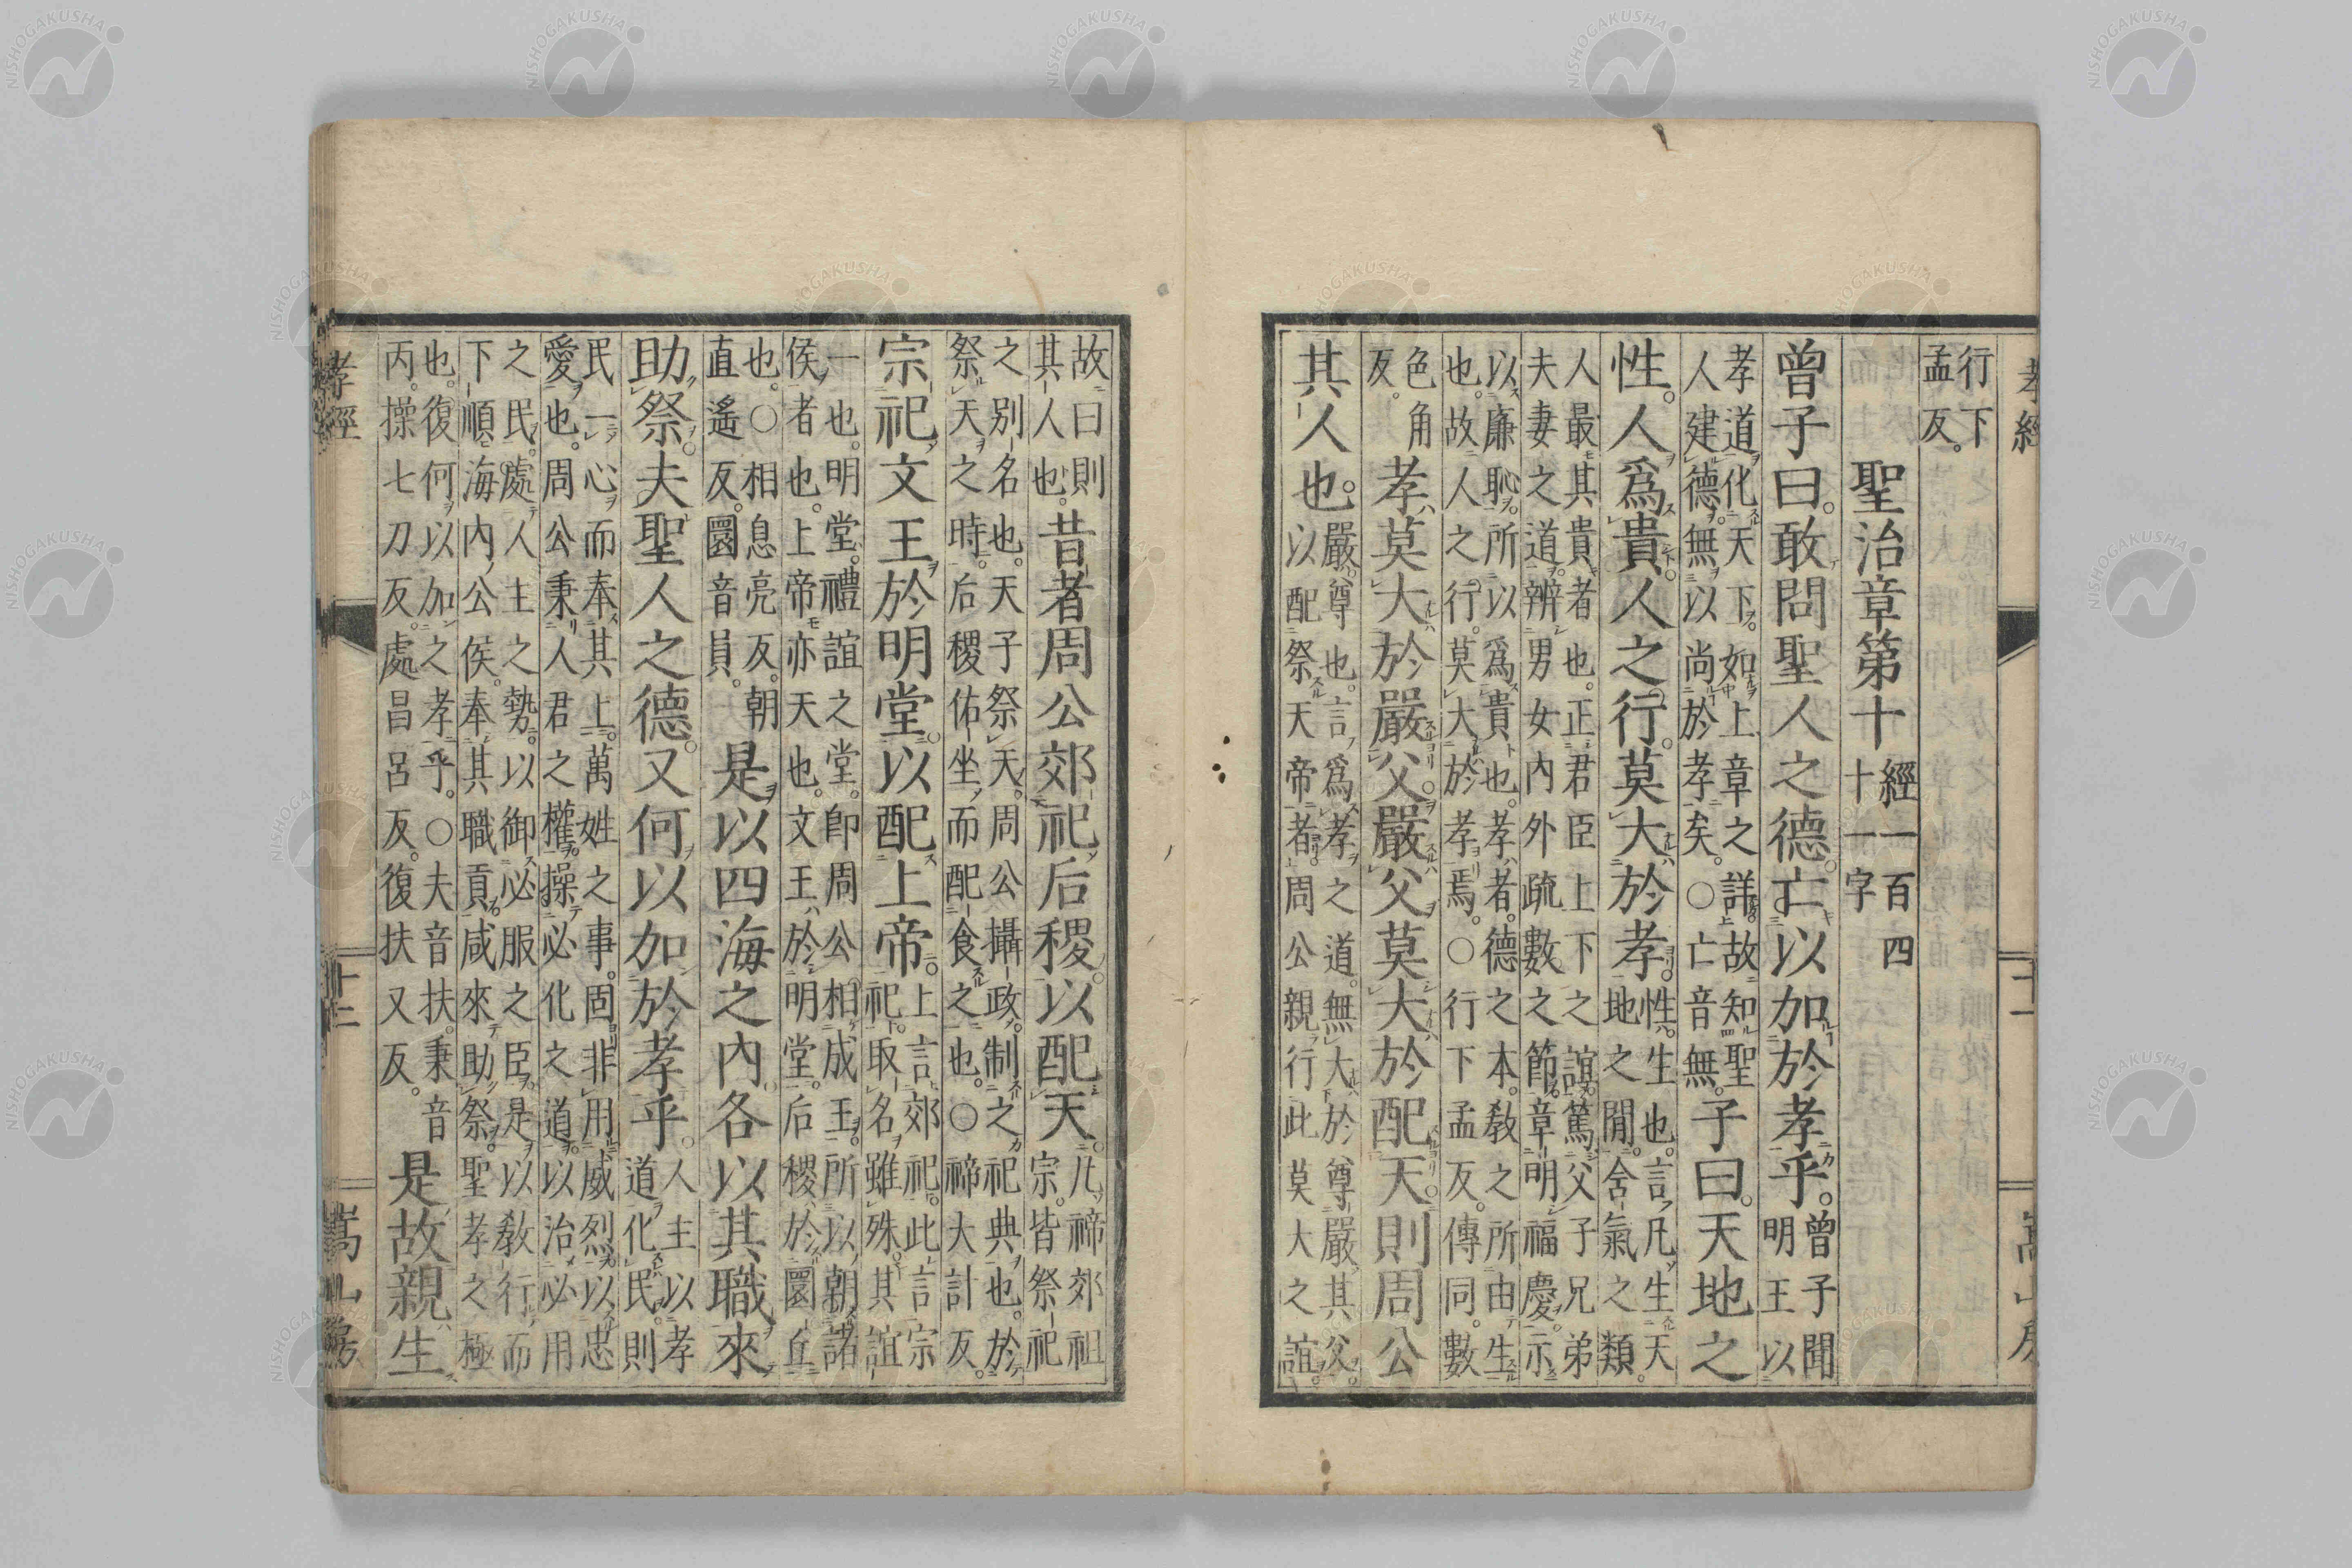 孝經
十一
嵩山房
行下
孟反。
聖治章第十 經一百四
十一字
曾子曰。敢問聖人之德。亡以加於孝乎。曾子聞
明王以
孝道化天下。如上章之詳。故知聖
人建德。無以尚於孝矣。○亡音無。子曰。天地之
性。人爲貴。人之行。莫大於孝。性。生也。言凡生天
地之閒。含氣之類
人最其貴者也。正君臣上下之誼。篤父子兄弟
夫妻之道。辨男女內外疏數之節。章明福慶。示
以廉恥。所以爲貴也。孝者。德之本。敎之所由生
也。故人之行。莫大於孝焉。○行下孟反。傳同。數
色角
反。孝莫大於嚴父。嚴父莫大於配天。則周公
其人也。嚴。尊也。言爲孝之道。無大於尊嚴其父。
以配祭天帝者。周公親行此莫大之誼。
故曰則
其人也。昔者周公郊祀后稷。以配天。凡禘郊祖
宗。皆祭祀
之別名也。天子祭天。周公攝政。制之祀典也。於
祭天之時。后稷佑坐而配食之也。○禘大計反。
宗祀文王於明堂。以配上帝。上言郊祀。此言宗
祀。取名雖殊。其誼
一也。明堂。禮誼之堂。卽周公相成王。所以朝諸
侯者也。上帝亦天也。文王於明堂。后稷於圜丘
也。○相息亮反。朝
直遙反。圜音員。是以四海之內。各以其職來
助祭。夫聖人之德。又何以加於孝乎。人主以孝
道化民。則
民一心而奉其上。萬姓之事。固非用威烈以忠
愛也。周公秉人君之權。操必化之道。以治必用
之民。處人主之勢。以御必服之臣。是以敎行而
下順。海內公侯。奉其職貢。咸來助祭。聖孝之極
也。復何以加之孝乎。○夫音扶。秉音
丙。操七刀反。處昌呂反。復扶又反。是故親生
孝經
十二
嵩山房